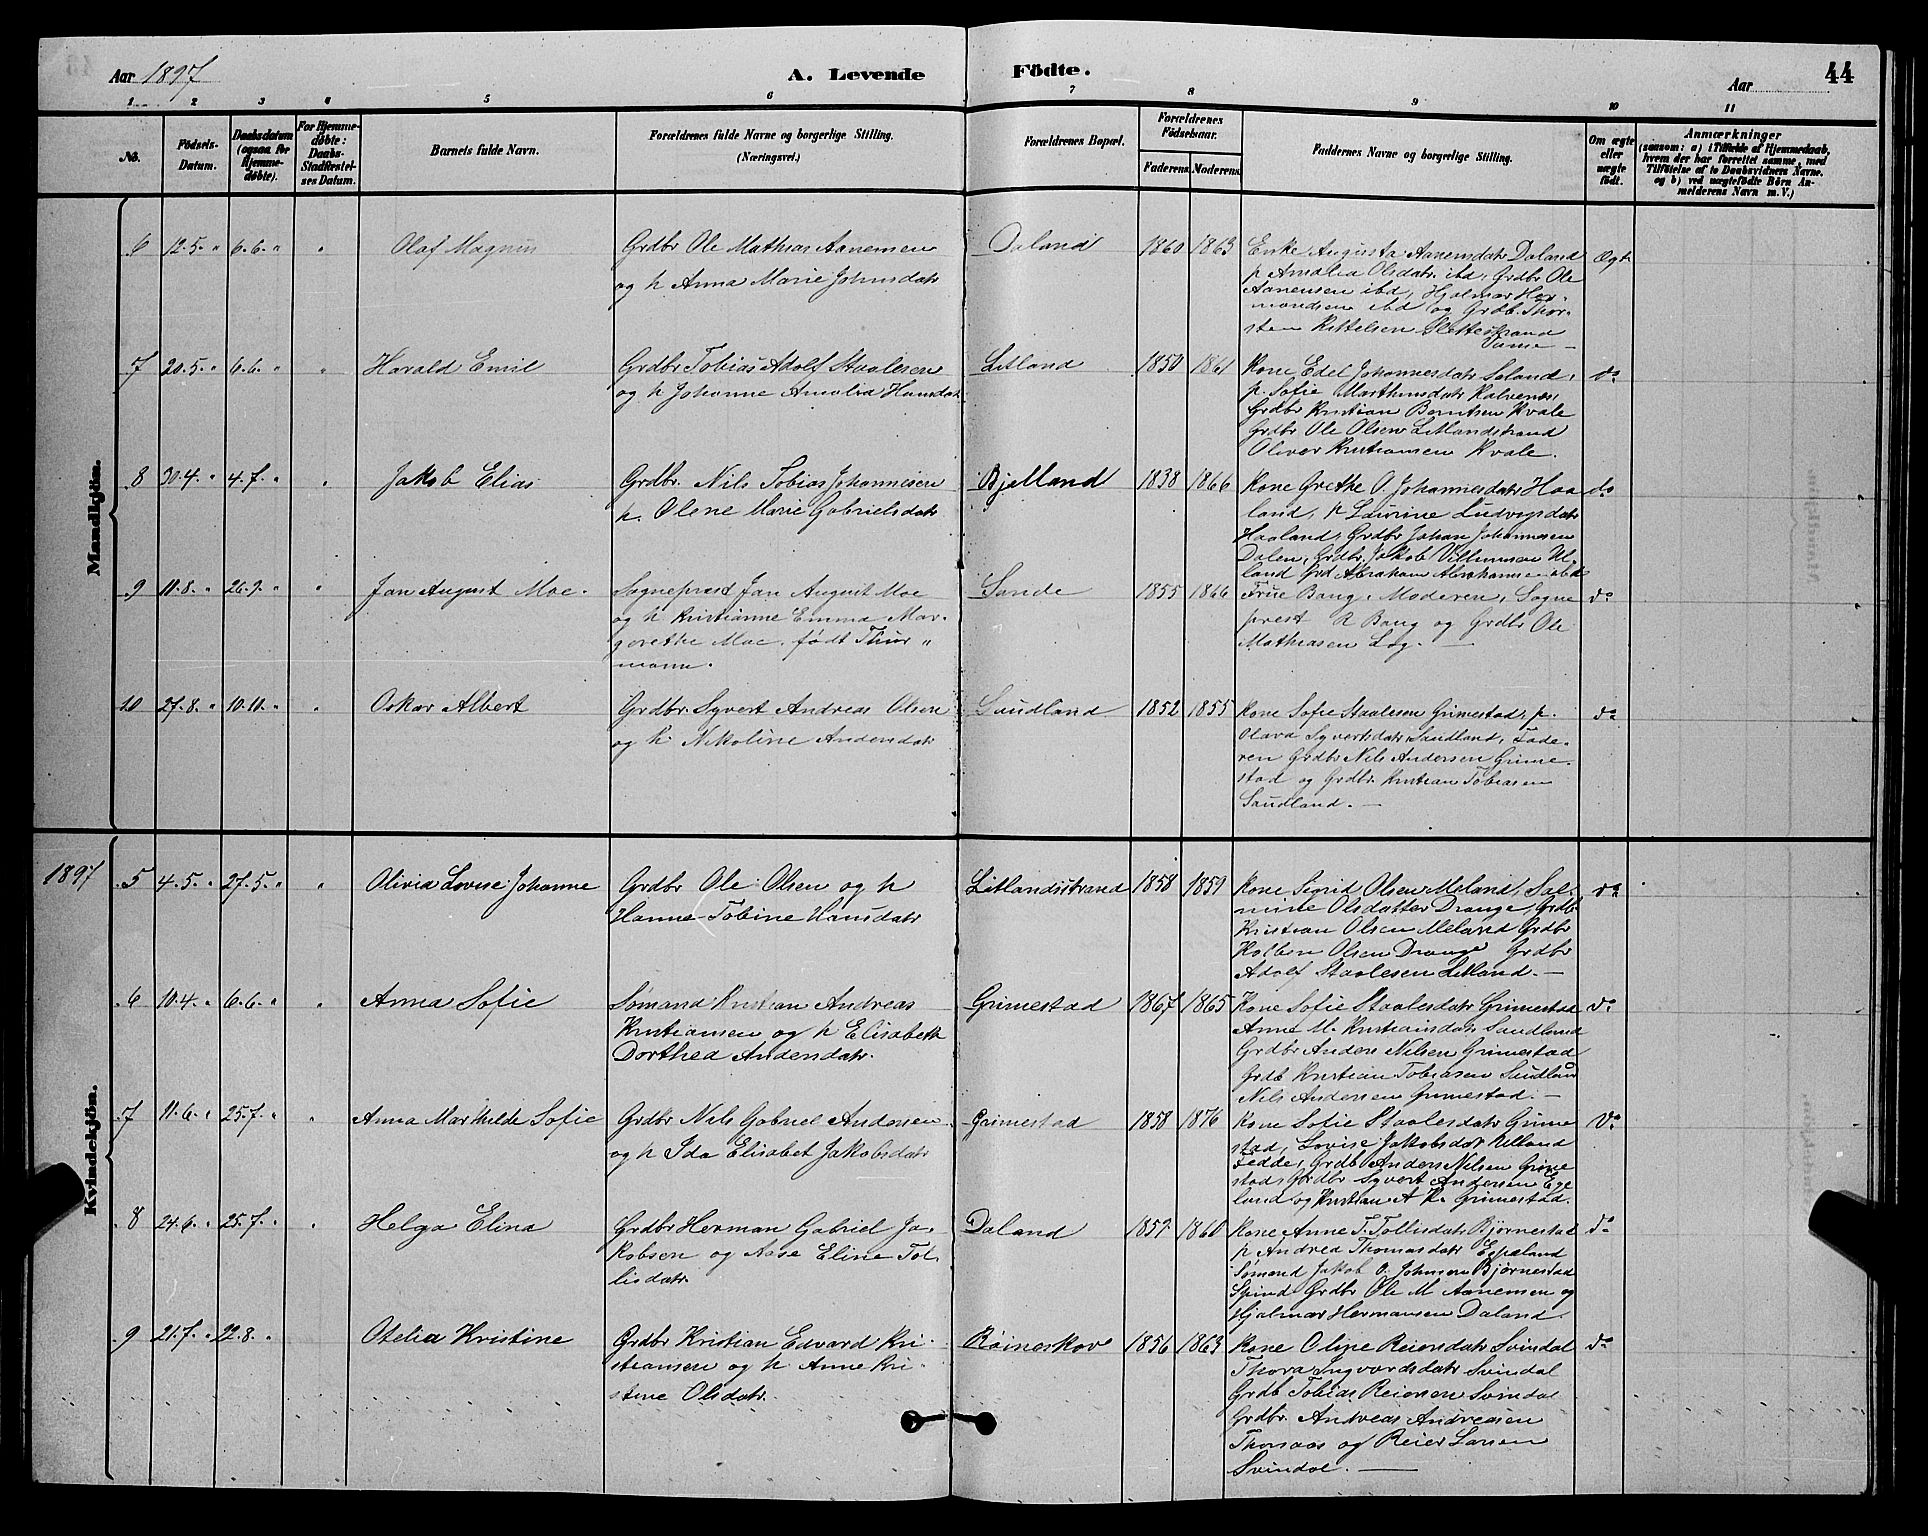 Aar 1897
A. Levende Födte.
Aar
44
1 2 3 4 5 6 7 8 9 10 11
No.
Födsels-Datum.
Daabsdatum (ogsaa for Hjemme-döbte).
For Hjemme-döbte: Daabs-Stadfæstel-ses Datum.
Barnets fulde Navn.
Forældrenes fulde Navne og borgerlige Stilling.
(Næringsvei.)
Forældrenes Bopæl.
Forældrenes Födselsaar.
Faderens. Moderens.
Faddernes Navne og borgerlige Stilling.
Om ægte eller uægte födt.
Anmærkninger
(saasom: a) i Tilfælde af Hjemmedaab, hvem der har forrettet samme, med Tilföielse af to Daabsvidners Navne, og b) ved uægtefödte Börn An-melderens Navn m. V.)
Mandkjön.
6 12.5. " 6.6. " " Olaf Magnus
Grdbr Ole Mathias Aanensen
og h Anna Marie Johnsdatr
Daland 1860 1863
Enke Augusta Aanensdatr Daland
p Amalia Olsdatr ibd, Grdbr Ole
Aanensen ibd, Hjalmar Her-
mandsen ibd og Grdb. Thor-
sten Kittelsen Slettestrand
Vanse —
Ægt.
7 20.5. " 6.6. " " Harald Emil
Grdbr Tobias Adolf Staalesen
og h Johanne Amalia Hansdatr
Litland 1850 1861
Kone Edel Johannesdatr Soland,
p. Sofie Marthinsdatr Kalvenes,
Grdbr Kristian Berntsen Kvale
Grdbr Ole Olsen Litlandstrand
Oliver Kristiansen Kvale.
do
8 30.4. " 4.7. " " Jakob Elias
Grdbr. Nils Tobias Johannesen
h. Olene Marie Gabrielsdatr
Bjelland 1838 1866
Kone Grethe O. Johannesdatr Haa
land, p Laurine Ludvigsdatr
Haaland, Grdbr Johan Johannesen
Dalen, Grdbr Jakob Villumsen Ul-
land Grd Abraham Abrahamsen ibd
do
9 11.8. " 26.9. " " Jan August Moe.
Sogneprest Jan August Moe
og h Kristianne Emma Mar-
garethe Moe, født Thur "
mann.
Sande 1855 1866
Frue Bang, Moderen, Sogne
prest A Bang og Grdbr Ole
Mathiasen Log. —
do
10 27.8. " 10.10. " " Oskar Albert
Grdbr. Syvert Andreas Olsen
og h. Nikoline Andersdatr
Saudland 1852 1855
Kone Sofie Staalesen Grimestad, p.
Olava Syvertsdatr Saudland, Fade-
ren Grdbr Nils Andersen Grime-
stad og Grdbr. Kristian Tobiasen
Saudland. —
do
1897
Kvindekjön.
5 4.5. " 27.5. " " Olivia Lovise Johanne
Grdbr Ole Olsen og h
Hanne Tobine Hansdatr
Litlandsstrand 1858 1859
Kone Sigrid Olsen Meland, Sal-
mine Olsdatter Drange, Grdb
Kristian Olsen Meland Grdbr
Kolben Olsen Drange Grdbr
Adolf Staalesen Litland. —
do
6 10.4. " 6.6. " " Anna Sofie
Sømand Kristian Andreas
Kristiansen og h Elisabeth
Dorthea Andersdatr.
Grimestad 1867 1865
Kone Sofie Staalesdatr Grimestad
Anne M. Kristiansdatr Saudland
Grdbr Anders Nilsen Grimestad
Grdb Kristian Tobiasen Saudland
Nils Andersen Grimestad. —
do
7 11.6. " 25.7. " " Anna Mathilde Sofie
Grdbr Nils Gabriel Andersen
og h Ida Elisabet Jakobsdatr
Grimestad 1858 1876
Kone Sofie Staalesdatr Grime
stad, Lovise Jakobsdatr Ulland
Fedde, Grdb Anders Nilsen Grime
stad, Grdbr Syvert Andersen Ege
land og Kristian A Kr Grimestad.
do
8 24.6. " 25.7. " " Helga Elina
Grdbr Herman Gabriel Ja-
kobsen og Aase Eline Tol-
lisdatr.
Daland 1859 1860
Kone Anne T. Tollisdatr Bjørnestad
p Andrea Thomasdatr Egeland
Sømand Jakob O. Johnsen Bjørnestad
Spind Grdbr Ole M Aanensen og
Hjalmar Hermansen Daland.
do
9 21.7. " 22.8. " Otelia Kristine
Grdbr Kristian Edvard Kri-
stiansen og h Anne Kri-
stine Olsdatr.
Röineskov 1856 1863
Kone Oline Reiersdatr Svindal
Thora Ingvardsdatr Svindal
Grdb Tobias Reiersen Svindal
Grdbr Andreas Andreasen
Thomaas og Reier Larsen
Svindal. —
do